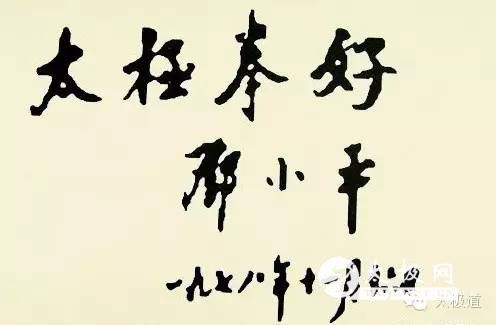 太極拳好
鄧小平
一九七八年十一月
太极网
太极道